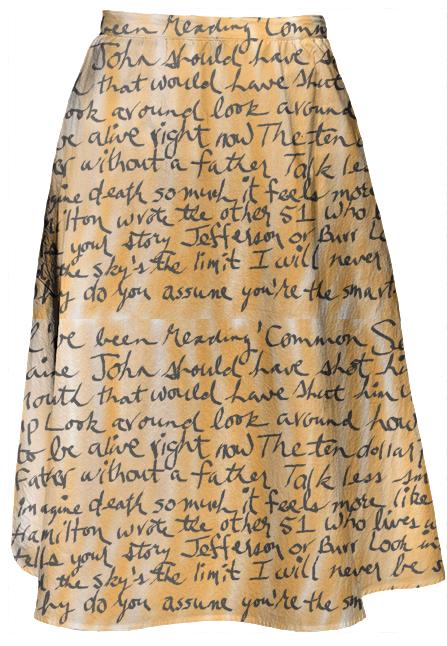 been reading 'Common
John should have shot
that would have shut
ook around look around
be alive right now The ten d
er without a father Talk les
agine death so much it feels more
ilton wrote the other 51 who l
your story Jefferson or Burr L
the sky's the limit I will never
hy do you assume you're the smart
I've been reading 'Common Se
aine John should have shot hi
mouth that would have shut him u
up Look around look around how
to be alive right now The ten dollar
father without a father Talk less sm
imagine death so much it feels more like
Hamilton wrote the other 51 who lives w
tells your story Jefferson or Burr Look in
the sky's the limit I will never be s
hy do you assume you're the sm